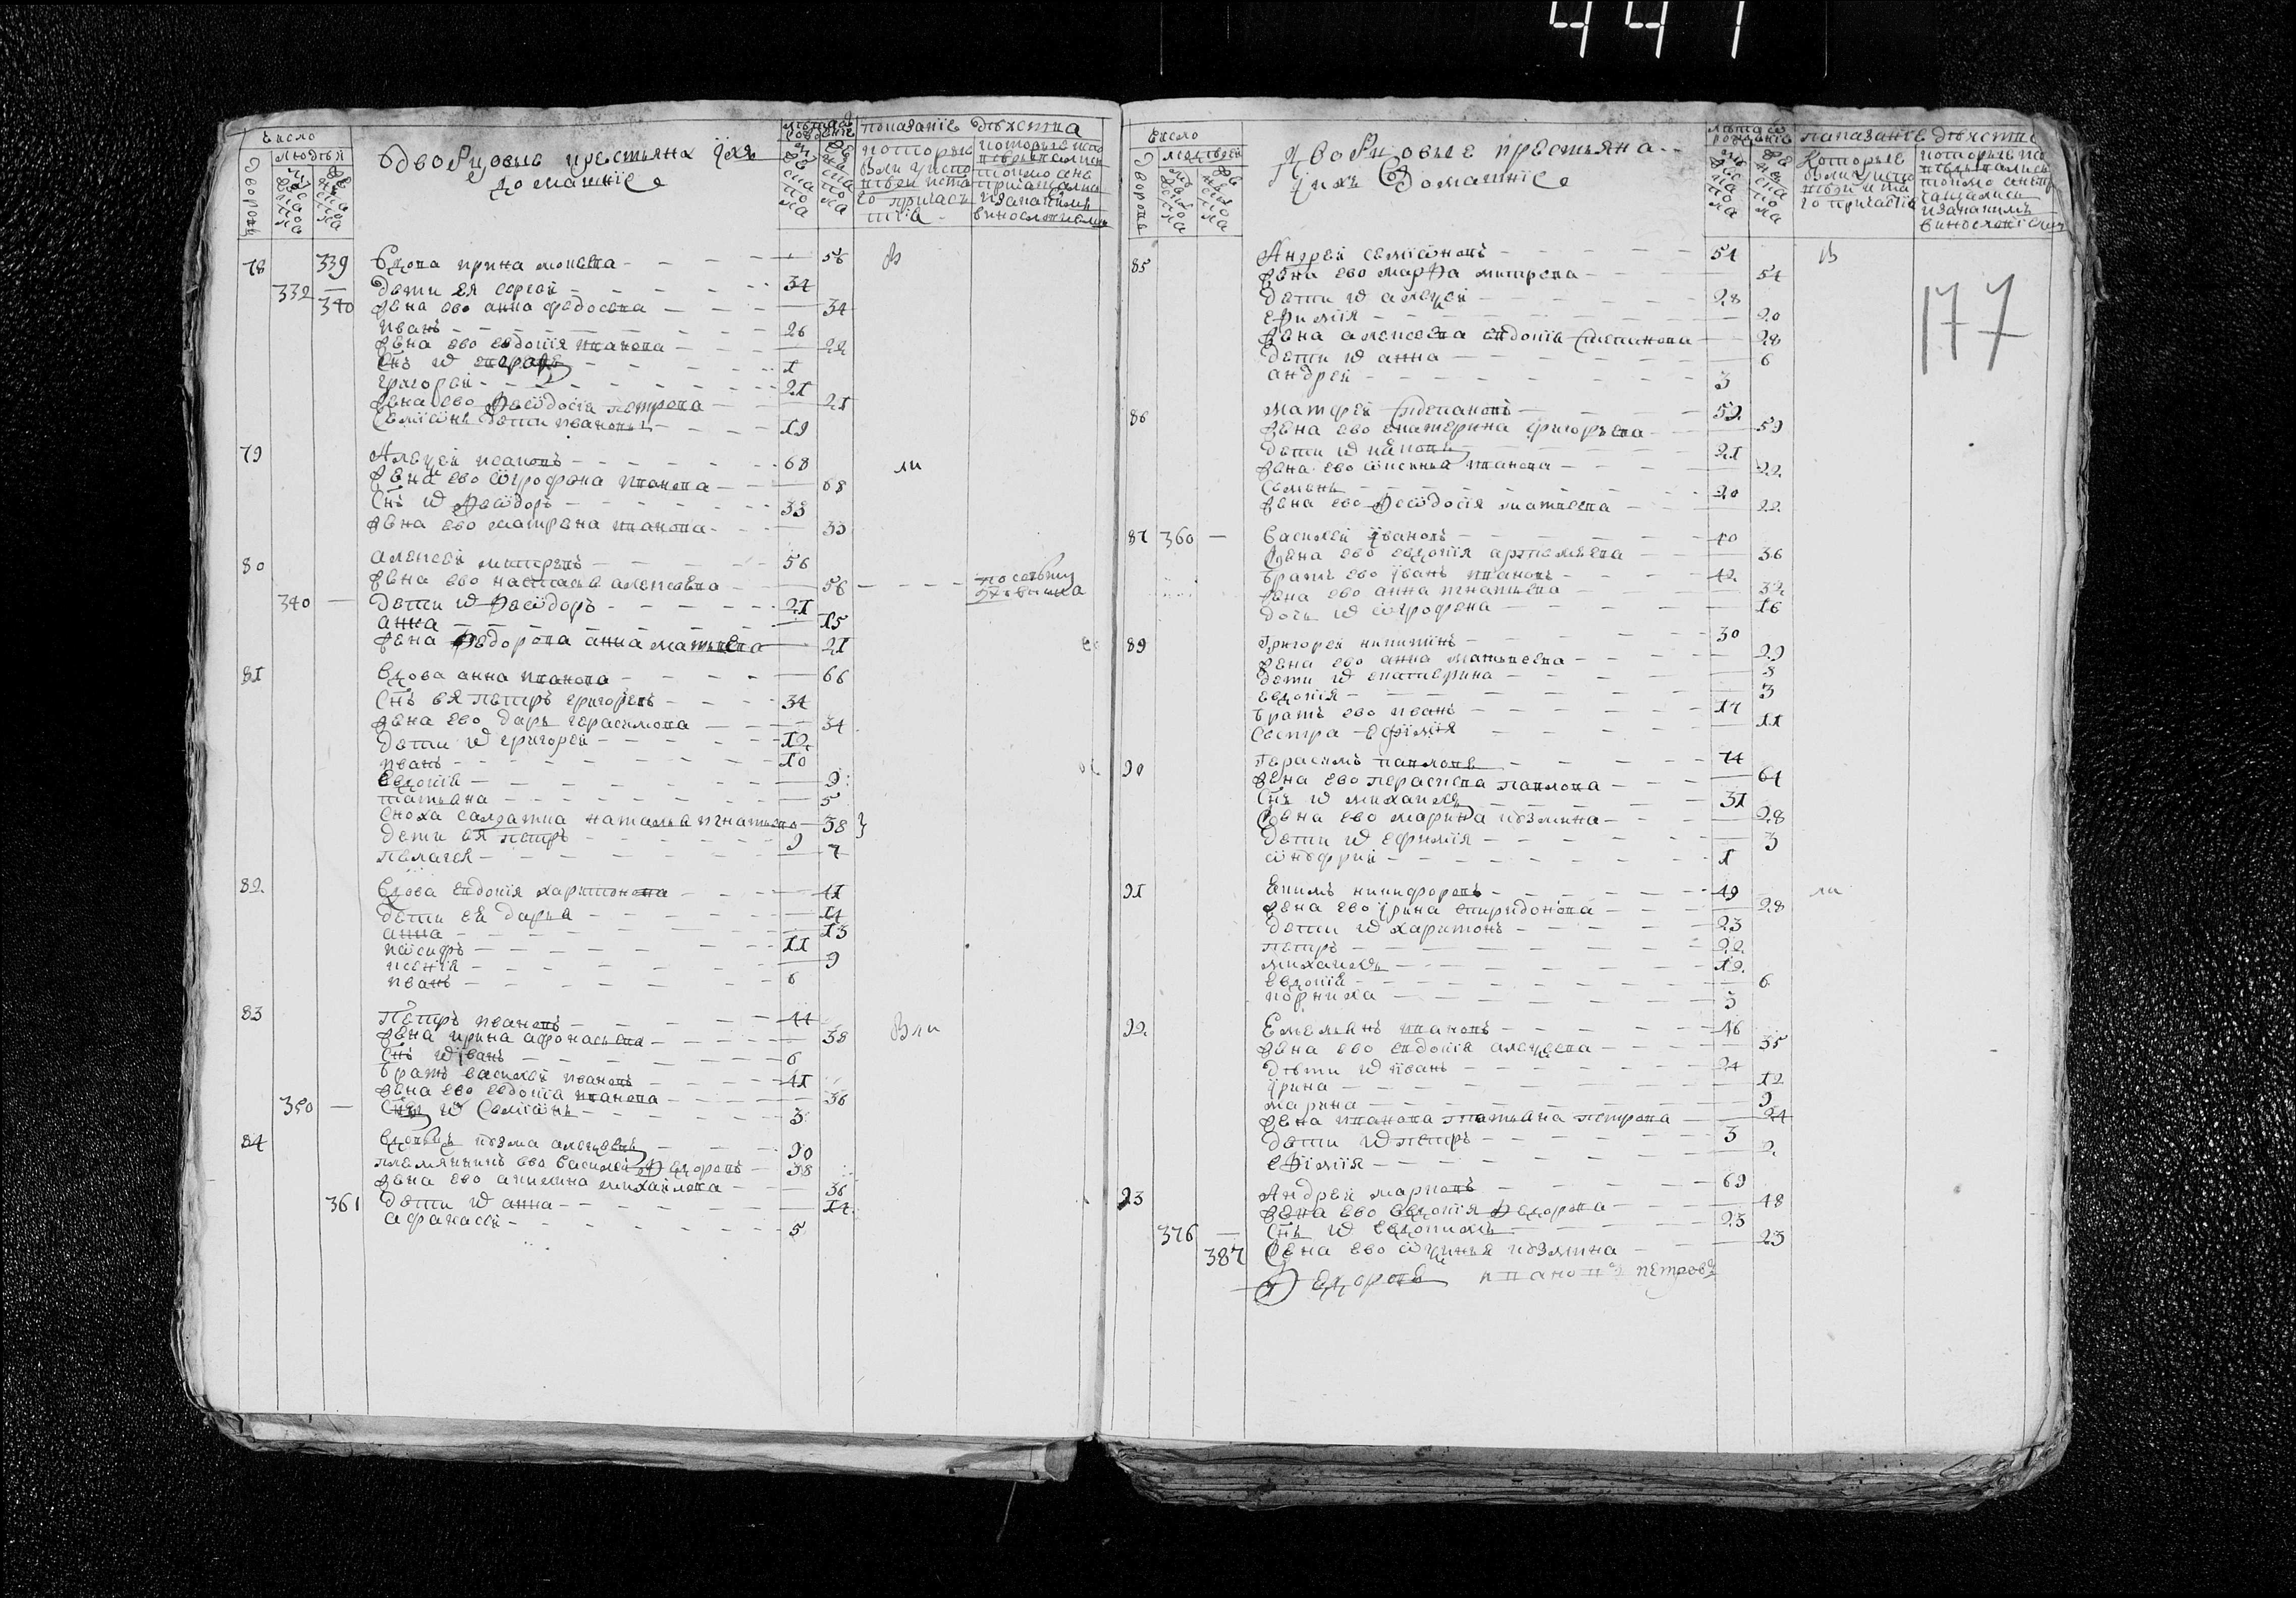 447
Число
Дворовъ
людей
мужеска пола
женска пола
Дворцовые крестьяня и ихъ
домашние
лета от рождения
мужеска пола
женска пола
показание действа
которые
были у испо
веди и ста
го причас
тия
которые испо
ведывались
токмо а не
причащались
и за какимъ
винословиемъ
78 339 Вдова ирина мокеева 56 в
332 Дети ея сергей 34
340 жена ево анна федосеева 34
иванъ 26
жена ево евдокия иванова 22
снъ их егоръ 1
григорей 21
жена ево феодосия петрова 21
Семионъ дети ивановы 19
79 Алексей ивановъ 68 ли
жена ево огрофена иванова 68
Снъ их феодоръ 33
жена ево матрена иванова 33
80 алексей митревъ 56
жена ево настасья алексеева 56
340 Дети их феодоръ 21
анна 15
жена федорова анна матвеева 21
81 Вдова анна иванова 66
Снъ ея петръ григоревъ 34
жена ево дарья герасимова 34
Дети их григорей 12
иванъ 10
Евдокия 9
татьяна 5
Сноха салдатка наталья игнатьева 38
Дети ея петръ 9
пелагея 7
82 Вдова евдокия харитонова 41
Дети ей дарья 14
анна 13
иосифъ 11
ксения 9
иванъ 6
83 Петръ ивановъ 44 в ли
жена ирина афонасьева 38
Снъ их иванъ 6
Братъ василей ивановъ 41
жена ево евдокия иванова 36
350 Снъ их Семионъ 3
84 вдовецъ козма алексеевъ 90
племянникъ ево василей федоровъ 38
жена ево акилина михайлова 36
361 Дети их анна 14
афанасей 5
Число
Дворовъ
людей
мужеска пола
женска пола
Дворцовые крестьяна
и ихъ домашние
лета от рождения
мужеска пола
женска пола
показание действа
Которые
были у испо
веди и ста
го причастия
которые испо
ведывались
токмо а не при
чащались
и за какимъ
винословием
177
85 Андрей семионовъ 54 в
жена ево марфа митрева 54
Дети их алексей 28
ефимия 20
жена алексеева евдокия степанова 28
Дети их анна 6
андрей 3
86 матфей степановъ 59
жена ево екатерина григорьева 59
Дети их иаковъ 21
жена ево оксинья иванова 22
Семенъ 20
жена ево феодосия матвеева 22
87 360 Василей ивановъ 40
жена ево евдокия артемьева 36
братъ ево иванъ ивановъ 42
жена ево анна игнатьева 32
дочь их огрофена 16
89 Григорей никитинъ 30
жена ево анна матвеева 29
Дети их екатерина 8
евдокия 3
братъ ево иванъ 17
Сестра ефимия 11
90 Герасимъ павловъ 74
жена ево парасковя павлова 64
Снъ их михаилъ 31
жена ево марина козмина 28
Дети их ефимия 3
онофрий 1
91 Екимъ никифоровъ 49 ли
жена ево ирина спиридонова 28
Дети их харитонъ 23
петръ 22
михаилъ 12
Евдокия 6
корнила 3
92 Емельянъ ивановъ 46
жена ево евдокия алексеева 35
Дети их иванъ 24
ирина 12
марина 9
жена иванова татьяна петрова 24
Дети их петръ 3
ефимия 2
93 Андрей марковъ 69
жена ево Евдокия федорова 48
376 Снъ их Евдокимъ 23
387 жена ево огринья козмина 23
федоровъ ивановъ петровъ